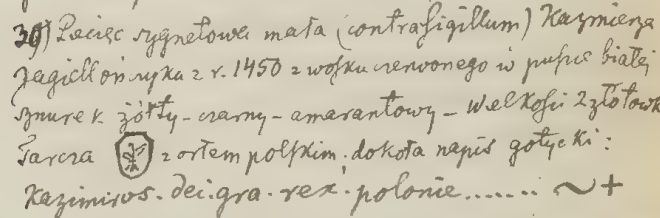 39) Pieczęć sygnetowa mała (contrasigillum) Kazmierza
Jagiellończyka z r. 1450 z wosku czerwonego w puszce białej
sznurek żółty - czarny - amarantowy - wielkości 2 złotówk
Tarcza z orłem polskim. dokoła napis gotycki:
Kazimirus. dei. gra. rex. polonie....... ~ +